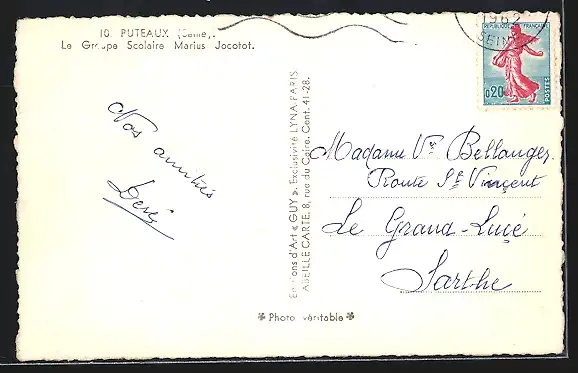 10. PUTEAUX (Seine).
Le Groupe Scolaire Marius Jacotot.
1962
SEINE
REPUBLIQUE FRANÇAISE
0,20
POSTES
Nos amitiés
Editions d'Art « GUY ». Exclusivité LYNA-PARIS
ABEILLE CARTE, 8, rue du Caire. Cent. 41-28.
Madame Vve Bellanger
Route St Vincent
Le Grand-Lucé
Sarthe
Photo véritable